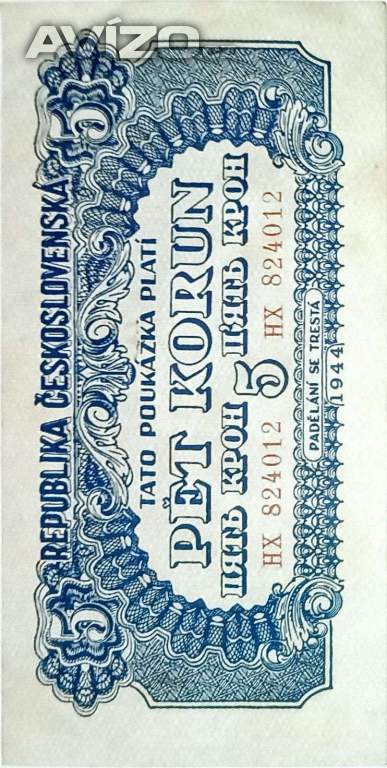 Avízo
REPUBLIKA ČESKOSLOVENSKÁ
5 5
TATO POUKÁZKA PLATÍ
PĚT KORUN
ПЯТЬ КРОН 5 П'ЯТЬ КРОН
НХ 824012 НХ 824012
PADĚLÁNÍ SE TRESTÁ
1944